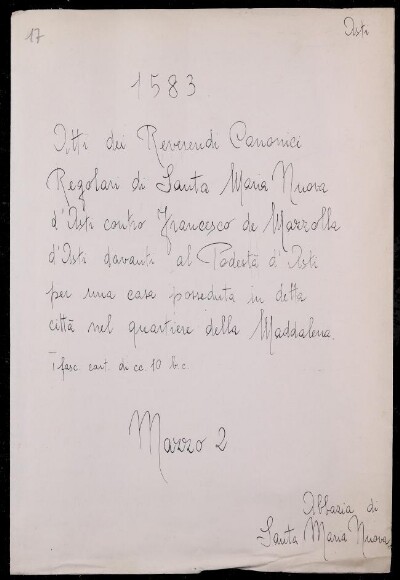 17
Asti
1583
Atti dei Reverendi Canonici
Regolari di Santa Maria Nuova
d'Asti contro Francesco de Mazzolla
d'Asti davanti al Podestà d'Asti
per una casa posseduta in detta
città nel quartiere della Maddalena.
1 fasc. cart. di cc. 10 b.c.
Mazzo 2
Abbazia di
Santa Maria Nuova